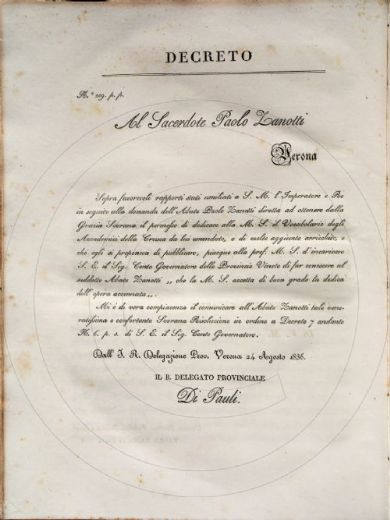 DECRETO
N.° 229. p. p.
Al Sacerdote Paolo Zanotti
Verona
Sopra favorevoli rapporti stati umiliati a S. M. l'Imperatore e Re
in seguito alla domanda dell'Abate Paolo Zanotti diretta ad ottenere dalla
Grazia Sovrana il permesso di dedicare alla M. S. il Vocabolario degli
Accademici della Crusca da lui emendato, e di molte aggiunte arricchito, e
che egli si propone di pubblicare, piacque alla pref. M. S. d'incaricare
S. E. il Sig. Conte Governatore delle Provincie Venete di far conoscere al
suddetto Abate Zanotti „ che la M. S. accetta di buon grado la dedica
dell'opera accennata „.
Mi è di vera compiacenza il comunicare all'Abate Zanotti tale
e confortante Sovrana Risoluzione in ordine a Decreto 7 andante
N. p. s. di S. E. il Sig. Conte Governatore.
Dall' I. R. Delegazione Prov. Verona 24 Agosto 1836.
IL R. DELEGATO PROVINCIALE
Di Pauli.